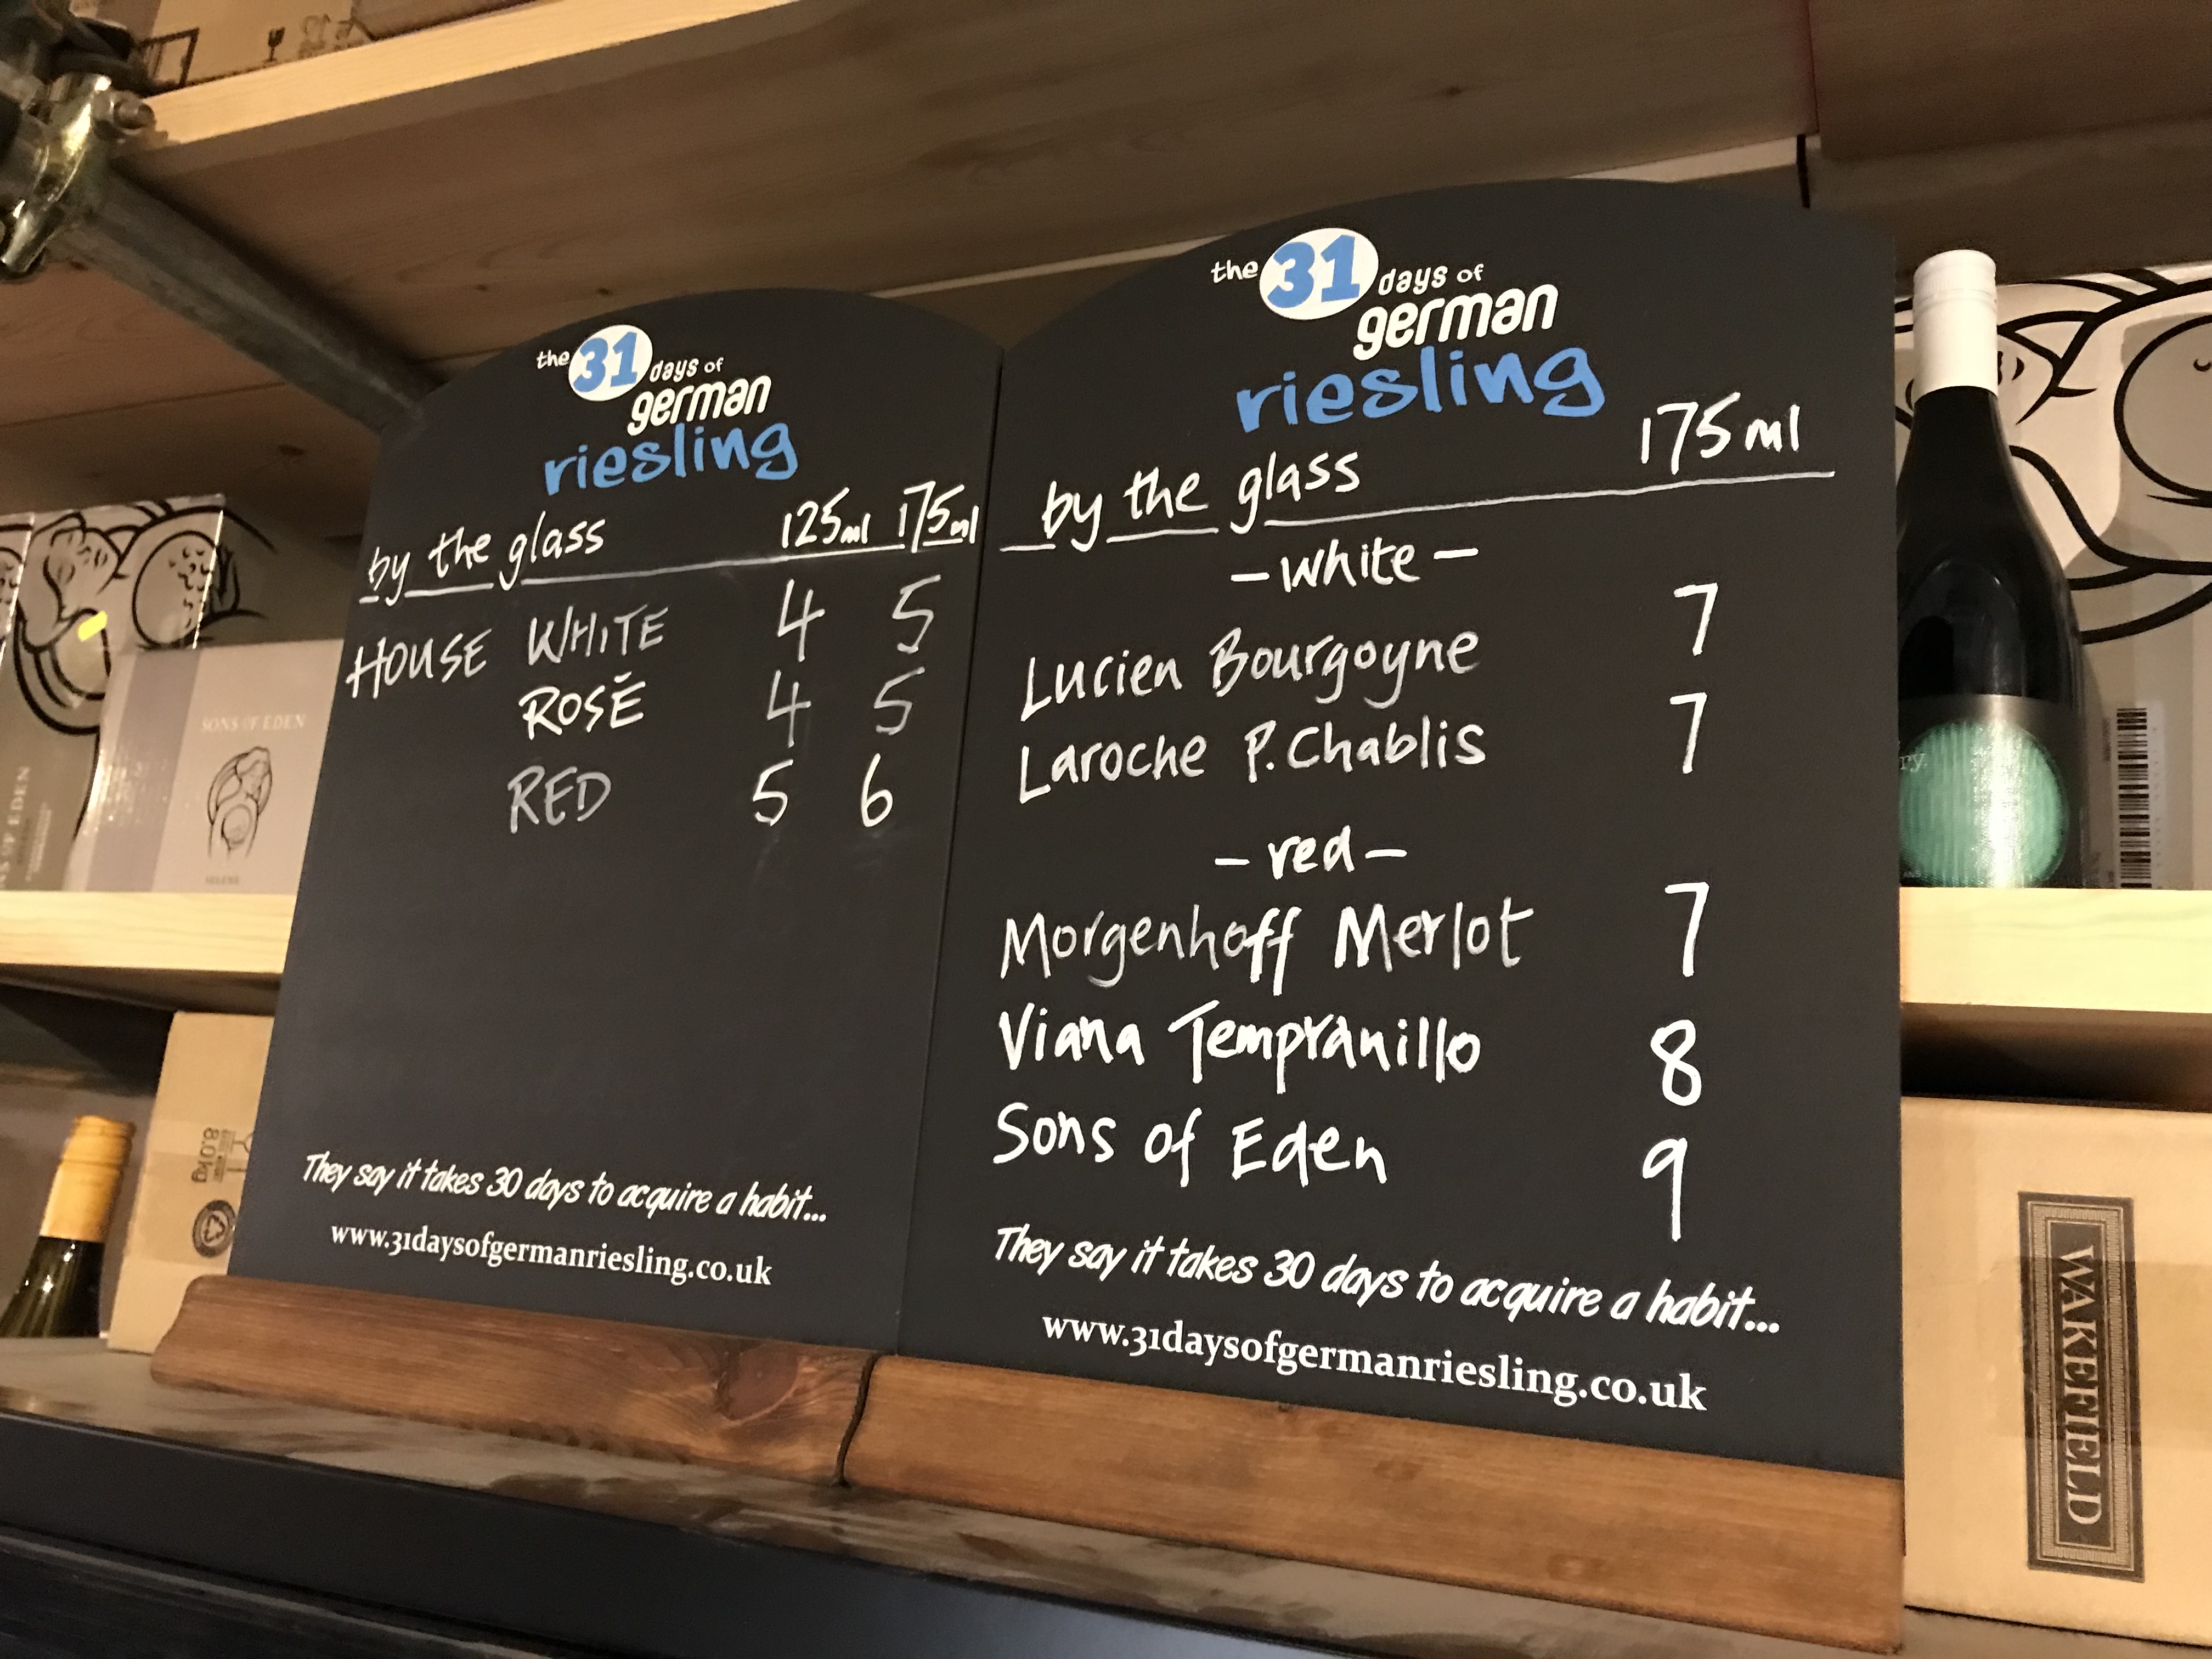 the 31 days of
german
riesling
by the glass 125ml 175ml
HOUSE WHITE 4 5
ROSÉ 4 5
RED 5 6
They say it takes 30 days to acquire a habit...
www.31daysofgermanriesling.co.uk
the 31 days of
german
riesling
by the glass 175ml
- white -
Lucien Bourgoyne 7
Laroche P. Chablis 7
- red -
Morgenhoff Merlot 7
Viana Tempranillo 8
Sons of Eden 9
They say it takes 30 days to acquire a habit...
www.31daysofgermanriesling.co.uk
SONS OF EDEN
8.0kg
WAKEFIELD